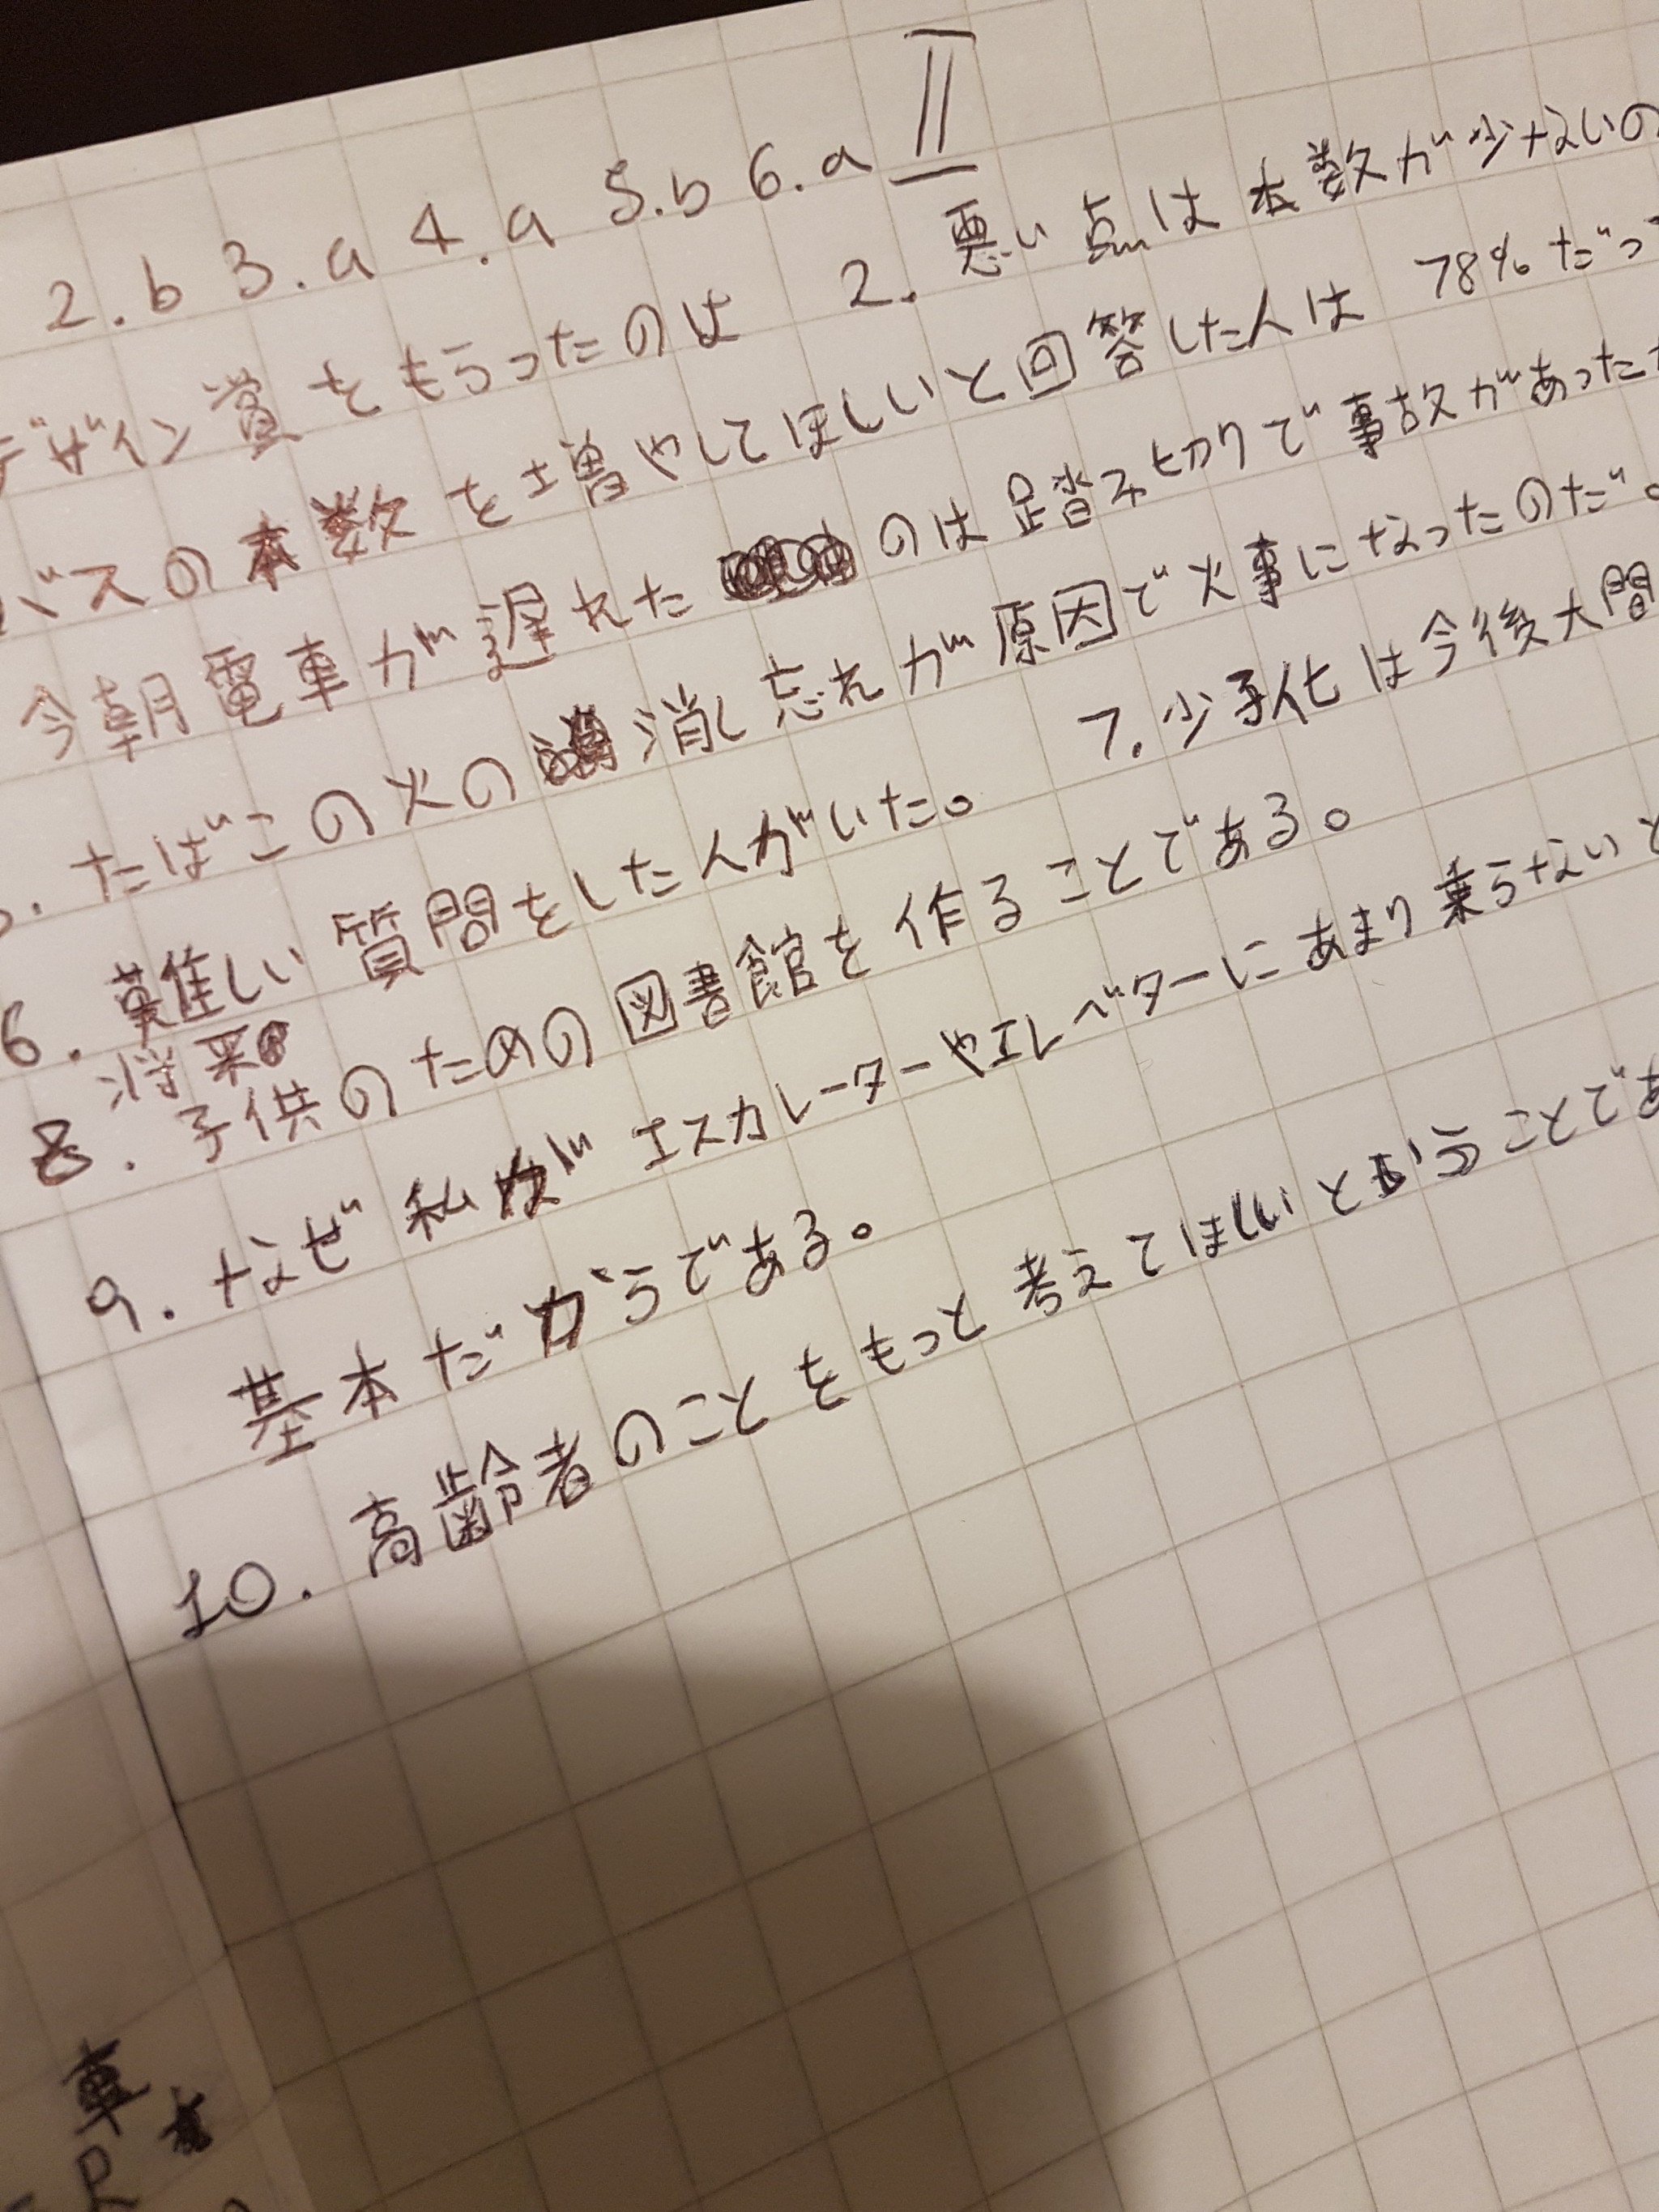 2.b 3.a 4.a 5.b 6.a II
デザイン賞をもらったのは 2. 悪い点は本数が少ないの
バスの本数を増やしてほしいと回答した人は 78%だっ
今朝電車が遅れたのは踏み切りで事故があった
たばこの火の消し忘れが原因で火事になったのだ。
6. 難しい質問をした人がいた。 7. 少子化は今後大問
将来
8. 子供のための図書館を作ることである。
9. なぜ私がエスカレーターやエレベーターにあまり乗らないと
基本だからである。
10. 高齢者のことをもっと考えてほしいということであ
車